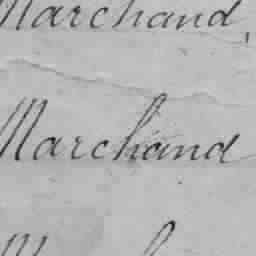 Marchand,
Marchand